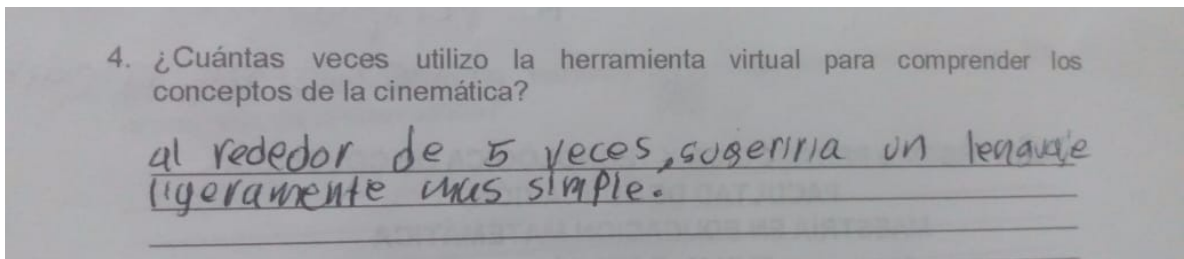 4. ¿Cuántas veces utilizo la herramienta virtual para comprender los
conceptos de la cinemática?
al rededor de 5 veces, sugeriria un lenguaje
ligeramente mas simple.